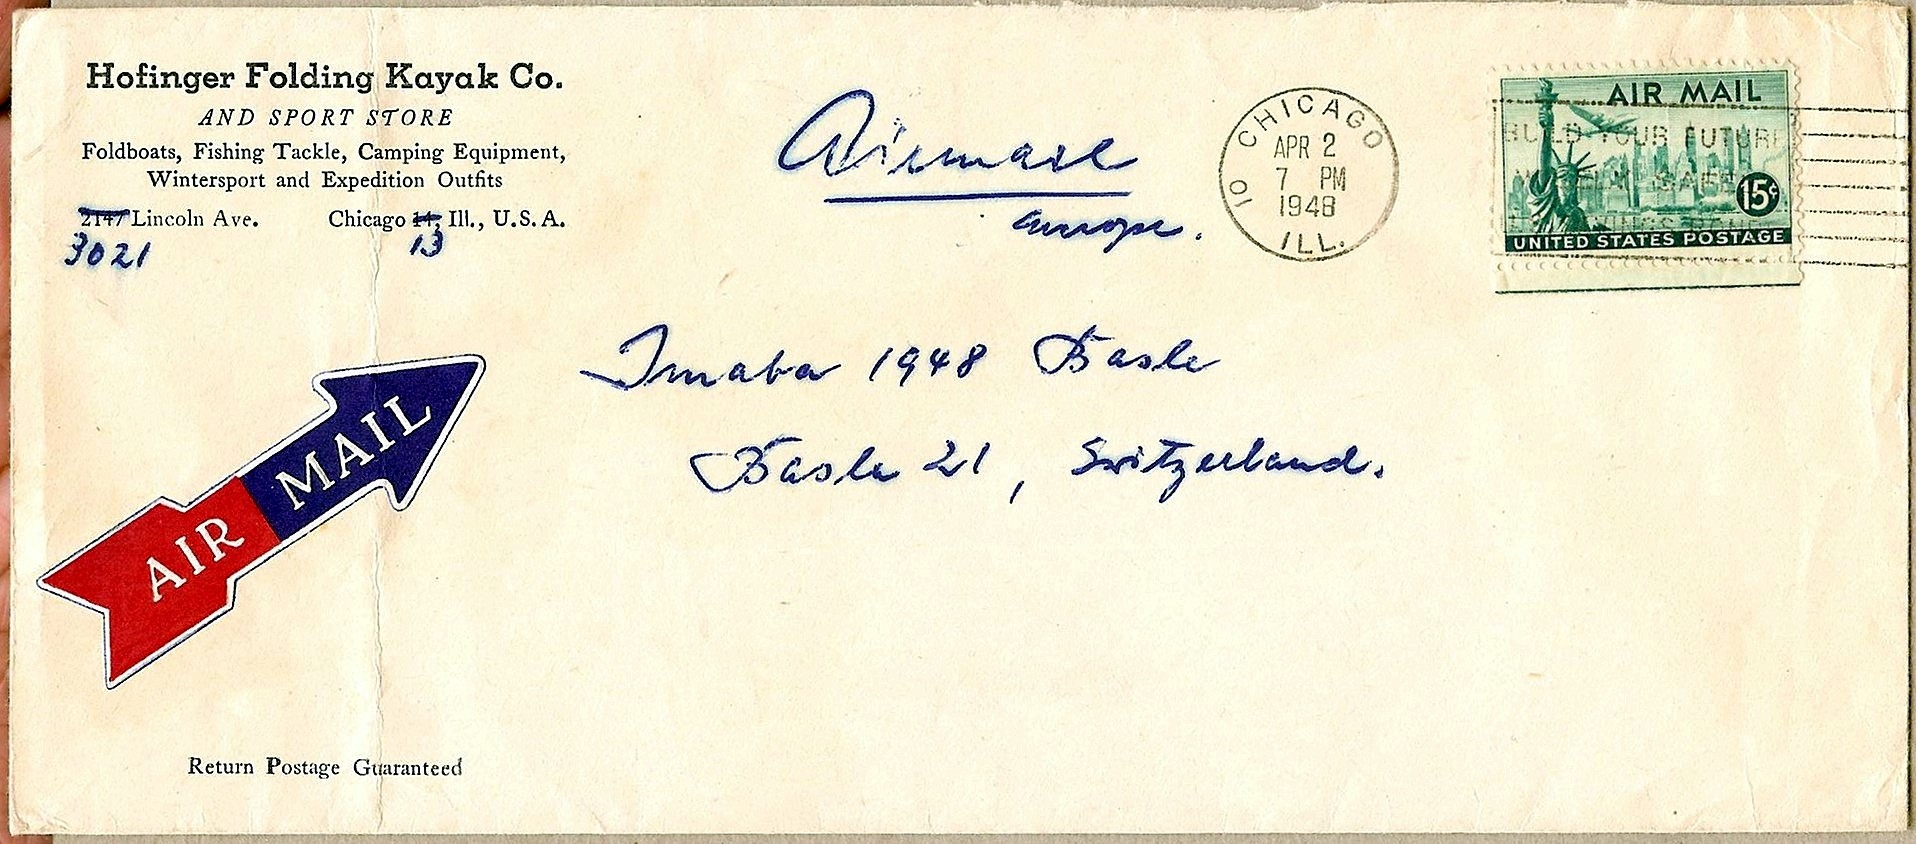 Hofinger Folding Kayak Co.
AND SPORT STORE
Foldboats, Fishing Tackle, Camping Equipment,
Wintersport and Expedition Outfits
2147 Lincoln Ave. Chicago 14, Ill., U.S.A.
3021 13
Airmail
Europe.
CHICAGO
APR 2
7 PM
1948
ILL.
10
AIR MAIL
BUILD YOUR FUTURE
15¢
UNITED STATES POSTAGE
Imaba 1948 Basle
Basle 21, Switzerland.
AIR MAIL
Return Postage Guaranteed